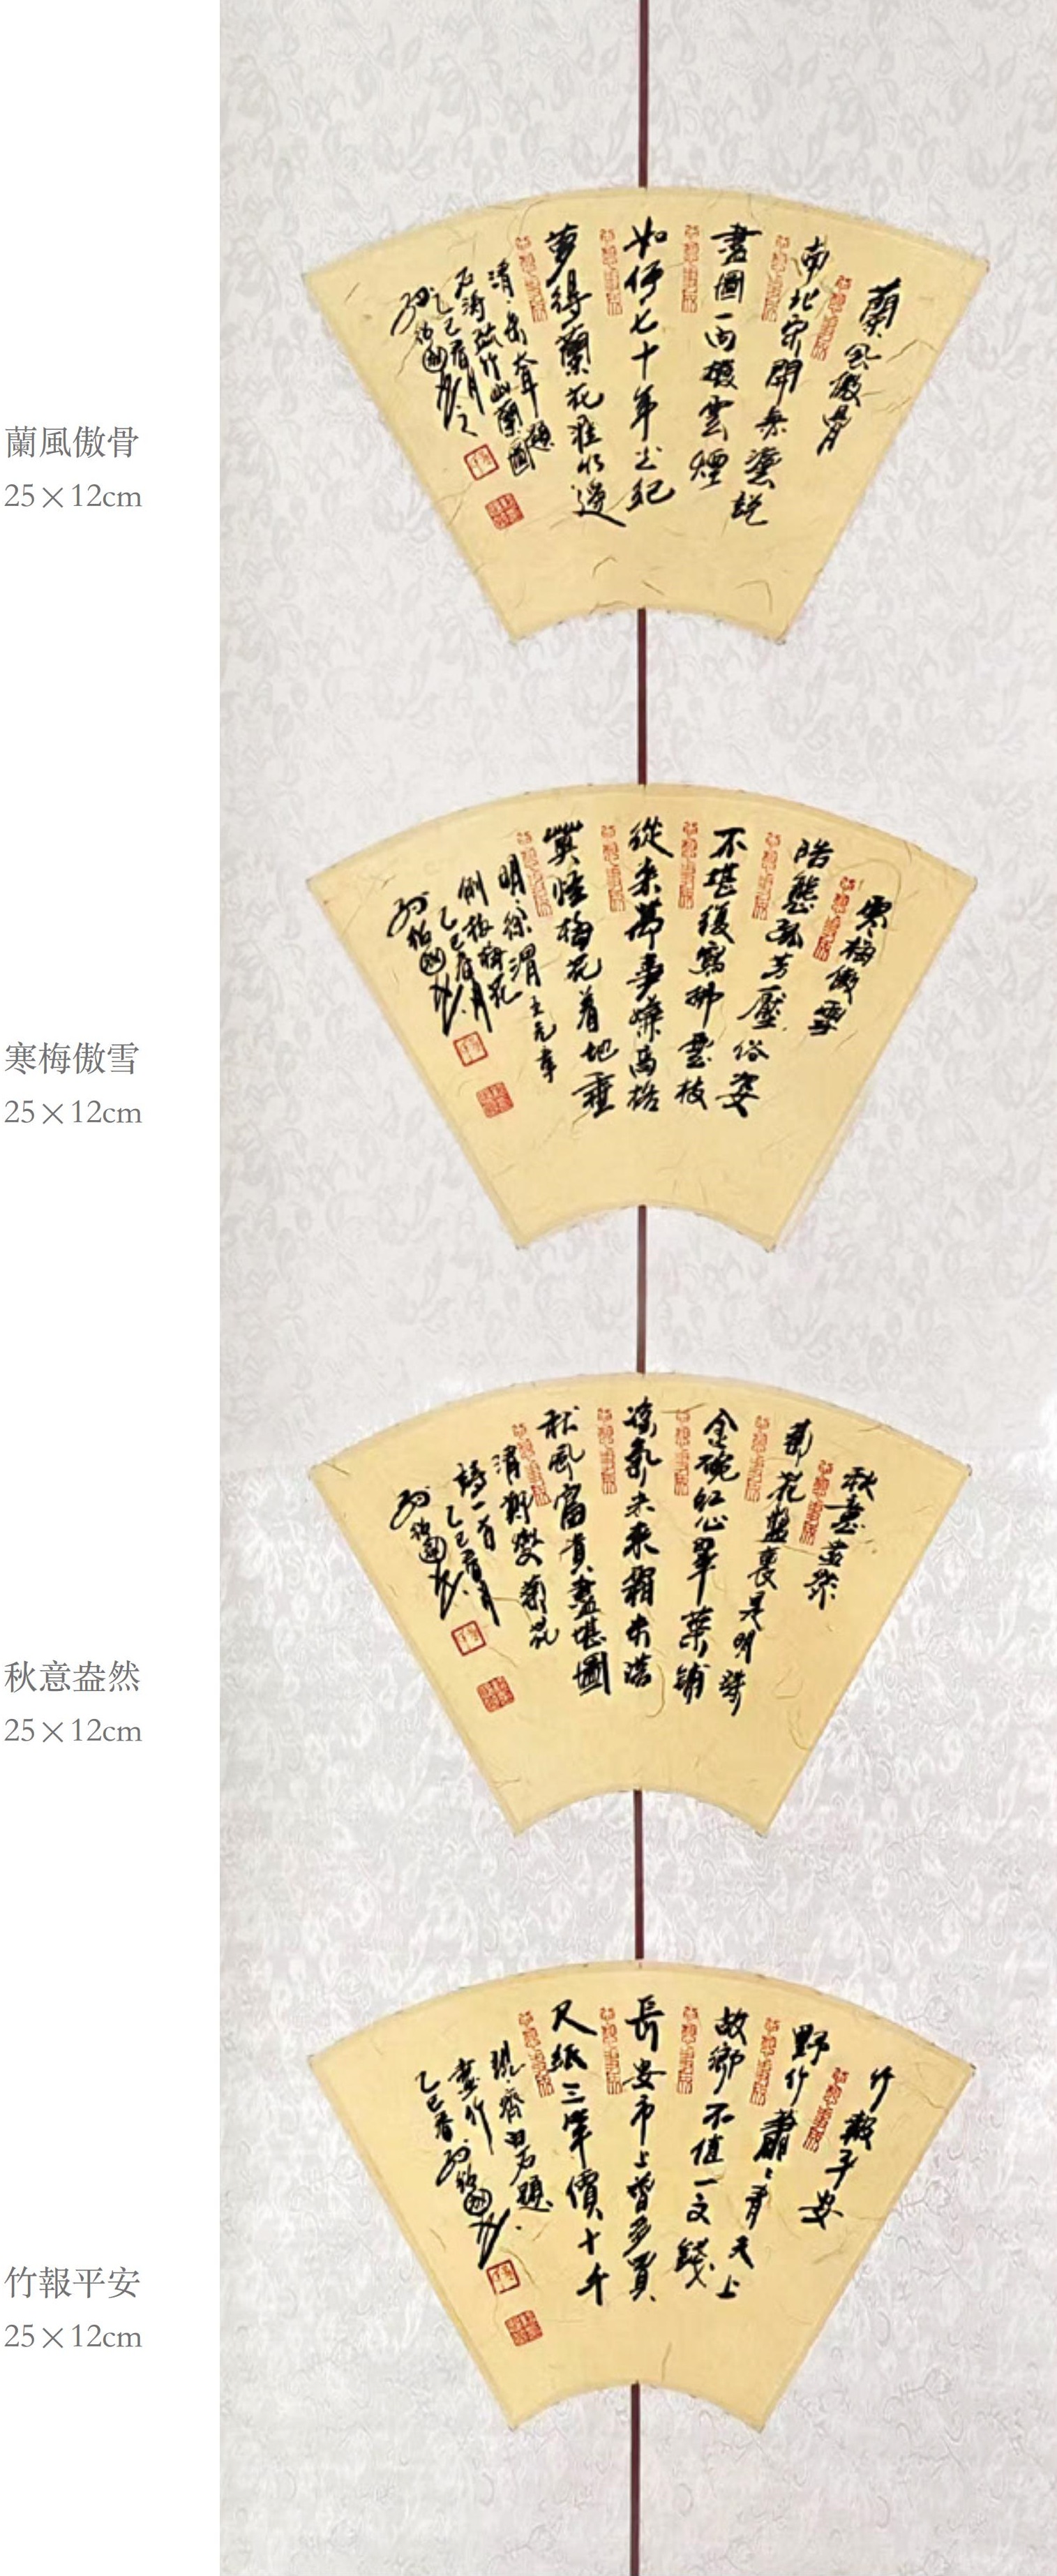 蘭風傲骨
25×12cm
蘭風傲骨
南北宗開無法說
畫圖一向潑雲煙
如何七十年光紀
夢得蘭花淮水邊
清·岳端題
石濤疏竹幽蘭圖
乙巳春月
寒梅傲雪
25×12cm
寒梅傲雪
皓態孤芳壓俗姿
不堪復寫拂雲枝
從來萬事嫌高格
莫怪梅花着地垂
明·徐渭王元章
倒枝梅花
乙巳春月
秋意盎然
25×12cm
秋意盎然
菊花盤裏是明珠
金碗紅心翠葉鋪
凉氣未來霜未落
秋風富貴盡堪圖
清鄭燮菊花
詩一首
乙巳春月
竹報平安
25×12cm
竹報平安
野竹蕭蕭青天上
故鄉不值一文錢
長安市上曾多買
尺紙三竿價十千
現·齊白石題
畫竹
乙巳春